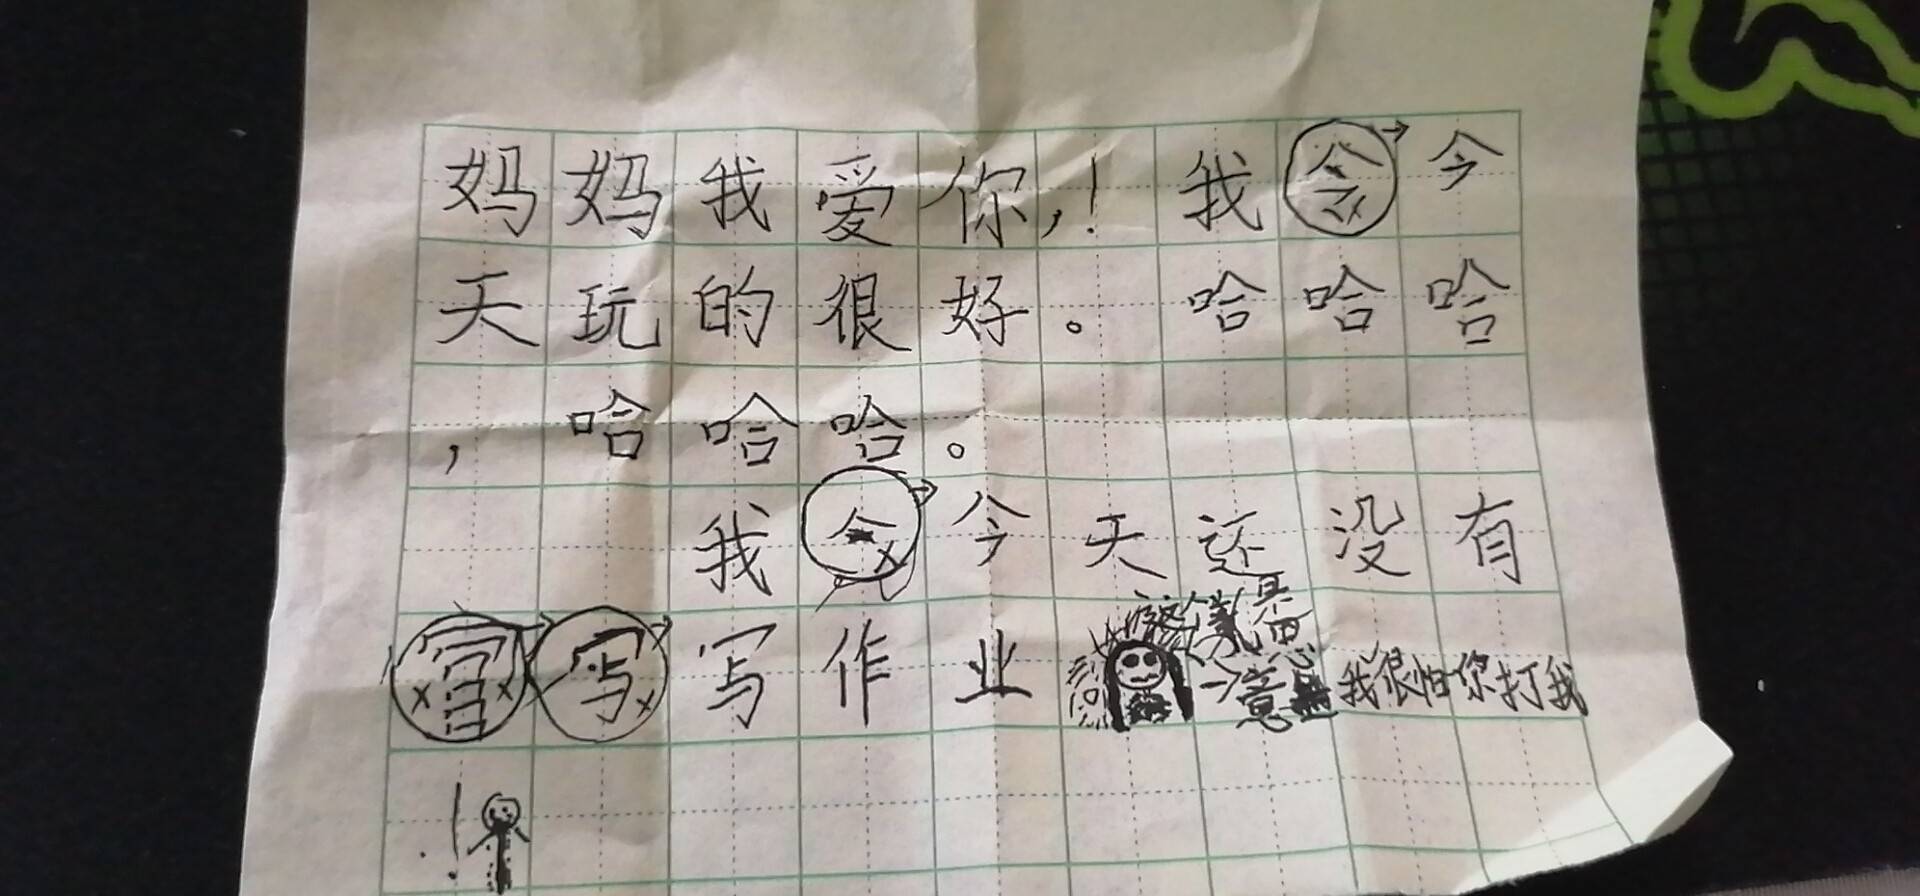 妈妈我爱你,！我今今
天玩的很好。哈哈哈
，哈哈哈。
我今天还没有
写作业
意
我很怕你打我
！